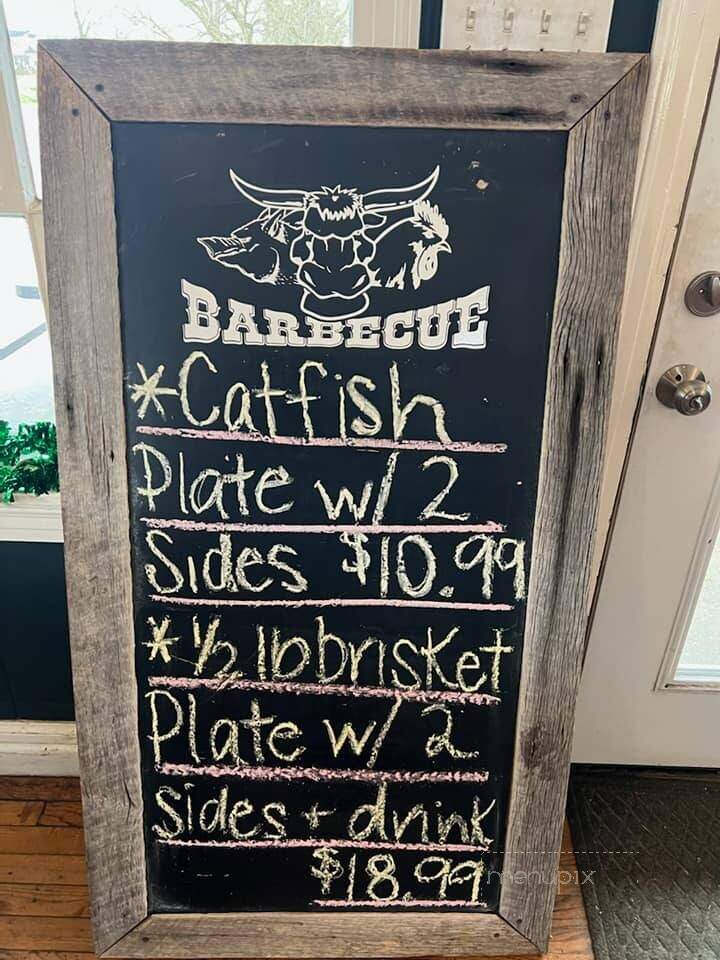 BARBECUE
*Catfish
Plate w/ 2
Sides $10.99
*½ lb brisket
Plate w/ 2
Sides + drink
$18.99
menupix